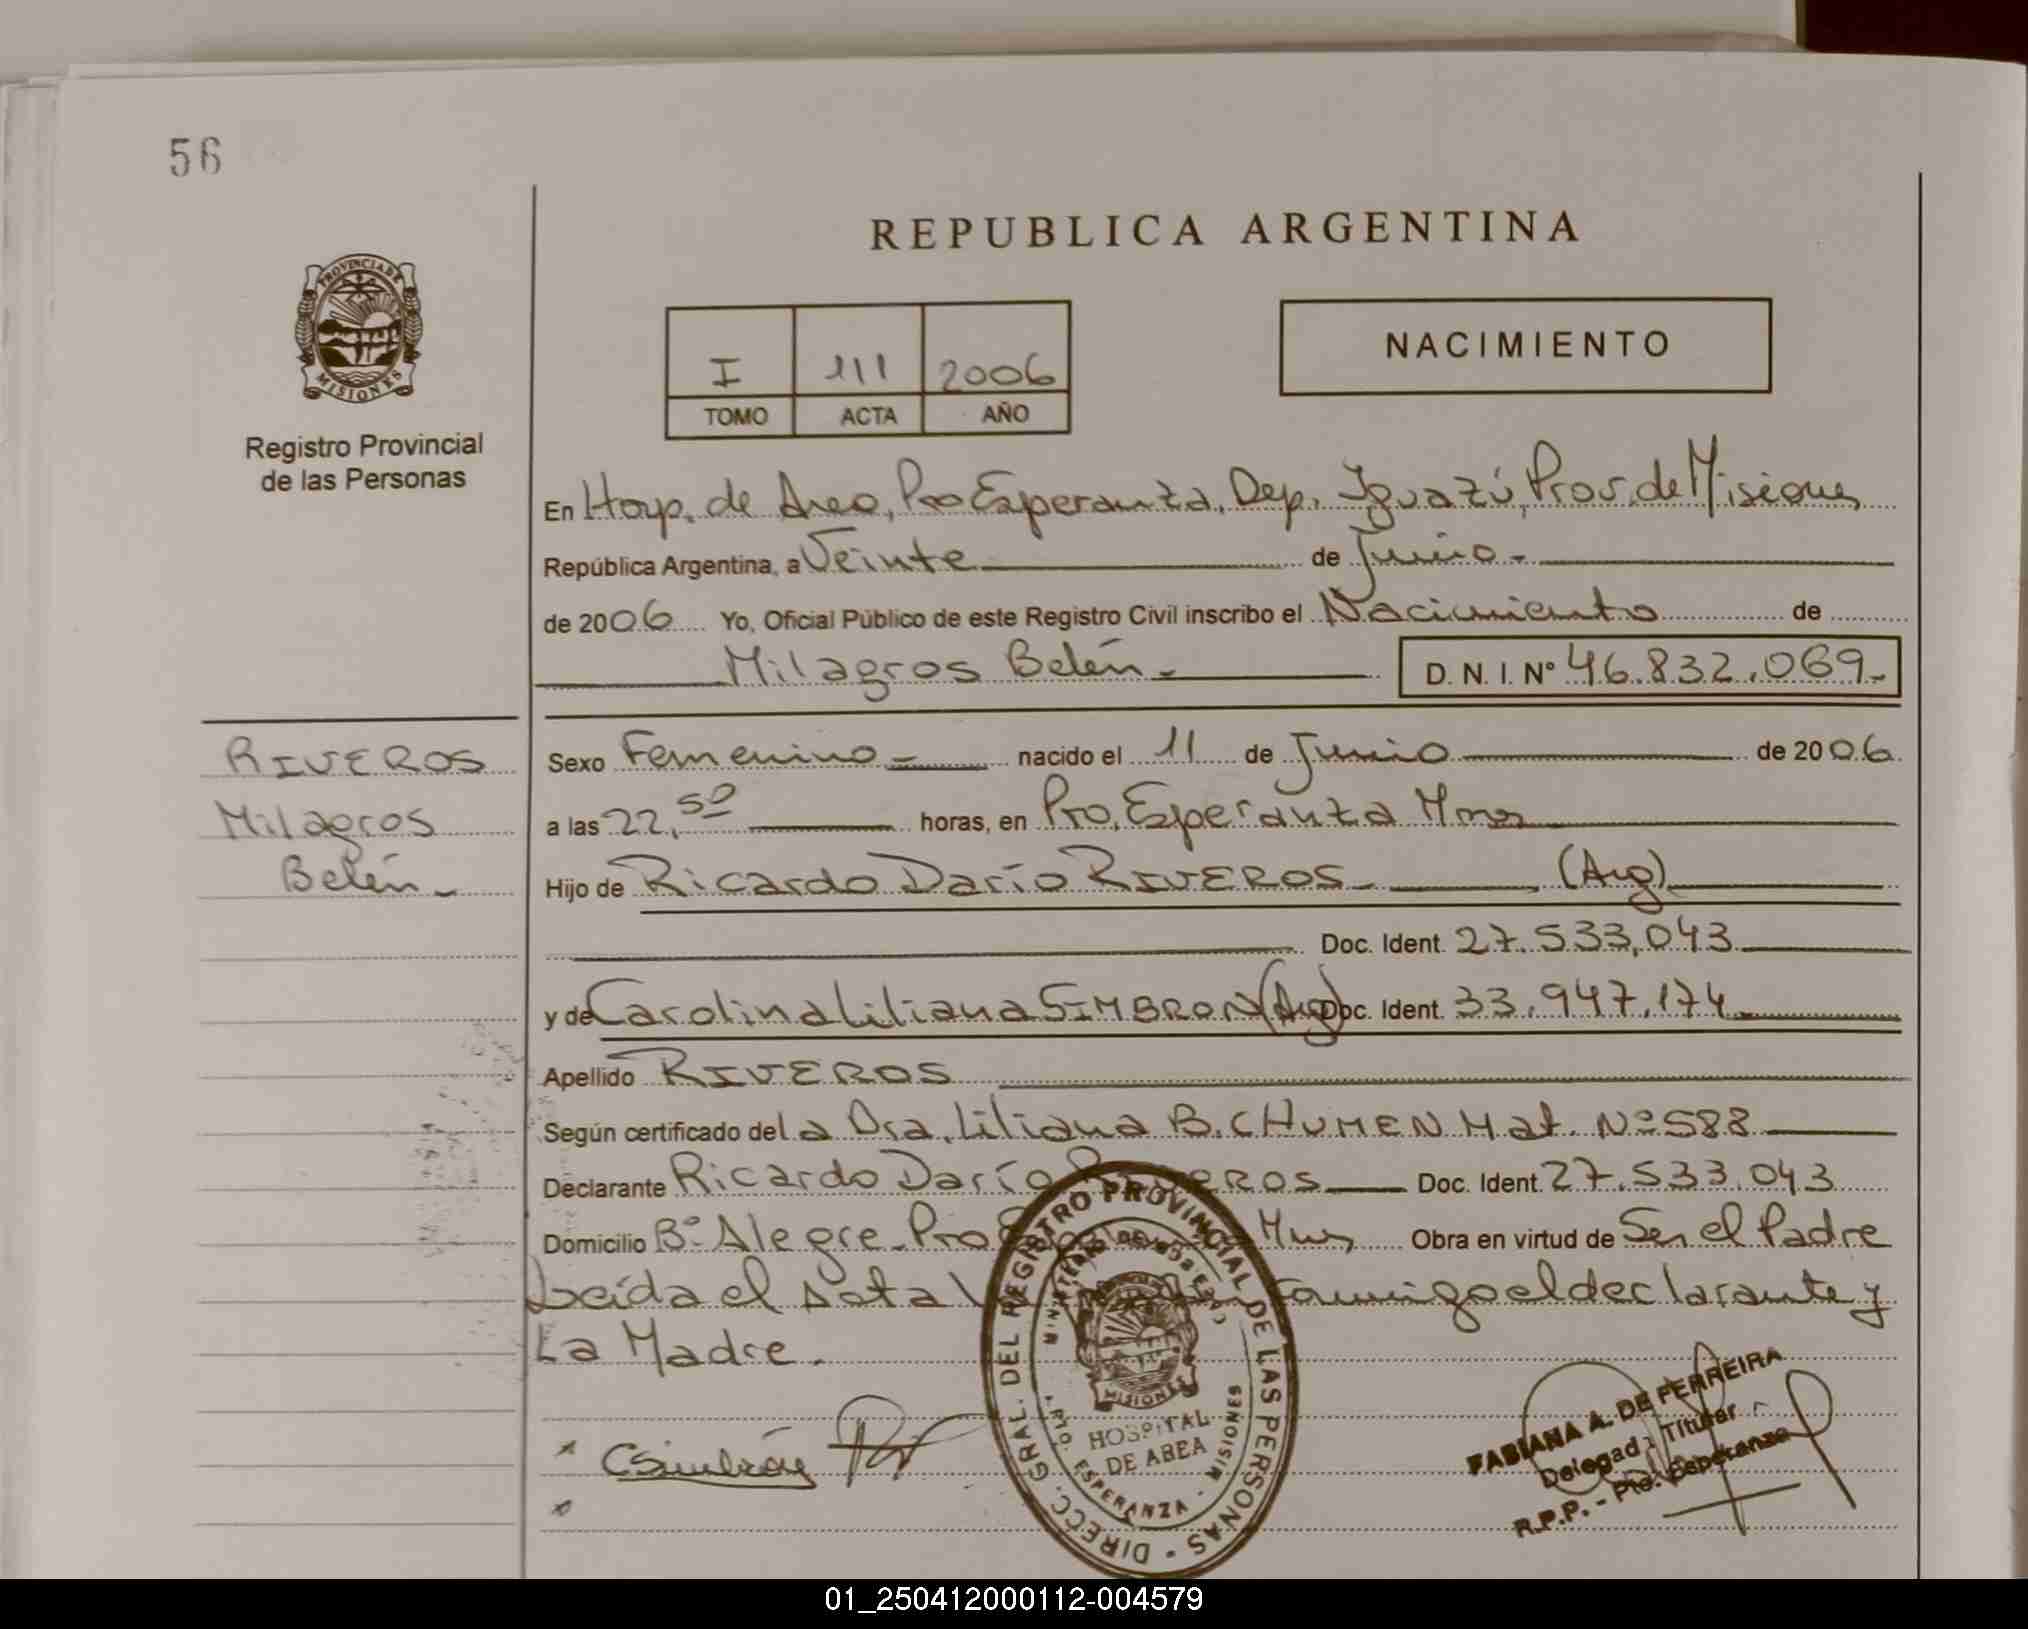 56
REPUBLICA ARGENTINA
PROVINCIA DE
MISIONES
Registro Provincial
de las Personas
I 111 2006
TOMO ACTA AÑO
NACIMIENTO
En Hosp. de Area, Pto Esperanza, Dep. Iguazú, Prov. de Misiones
República Argentina, a Veinte de Junio.-
de 2006 Yo, Oficial Público de este Registro Civil inscribo el Nacimiento de
Milagros Belén.- D. N. I. Nº 46.832.069.-
RIVEROS
Milagros
Belén.-
Sexo Femenino.- nacido el 11 de Junio de 2006
a las 22,50 horas, en Pto. Esperanza Mnes
Hijo de Ricardo Darío RIVEROS.- (Arg)
Doc. Ident. 27.533.043
y de Carolina Liliana SIMBRON (Arg) Doc. Ident. 33.947.174
Apellido RIVEROS
Según certificado de la Dra. Liliana B. CHUMEN Mat. Nº 588
Declarante Ricardo Darío Doc. Ident. 27.533.043
Domicilio Bº Alegre-Pto Mnes Obra en virtud de Ser el Padre
Leída el Acta conmigo el declarante y
La Madre.
CSimbrón
DIRECC. GRAL. DEL REGISTRO PROVINCIAL DE LAS PERSONAS
MINISTERIO DE GOBIERNO
MISIONES
HOSPITAL
DE AREA
PTO. ESPERANZA - MISIONES
FABIANA A. DE FERREIRA
Delegada Titular
R.P.P. - Pto. Esperanza
01_250412000112-004579